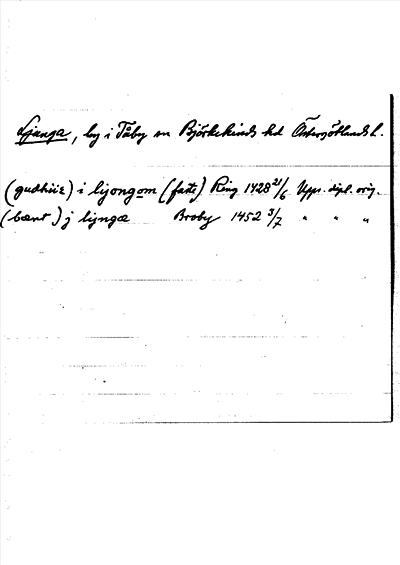 Ljunga, by i Tåby sn Björkekinds hd Östergötlands l.
(gudhizie) i liyongom (faste) Ring 1428 21/6 Upps. dipl. orig.
(bænt) j liyngæ Broby 1452 3/7 " " "